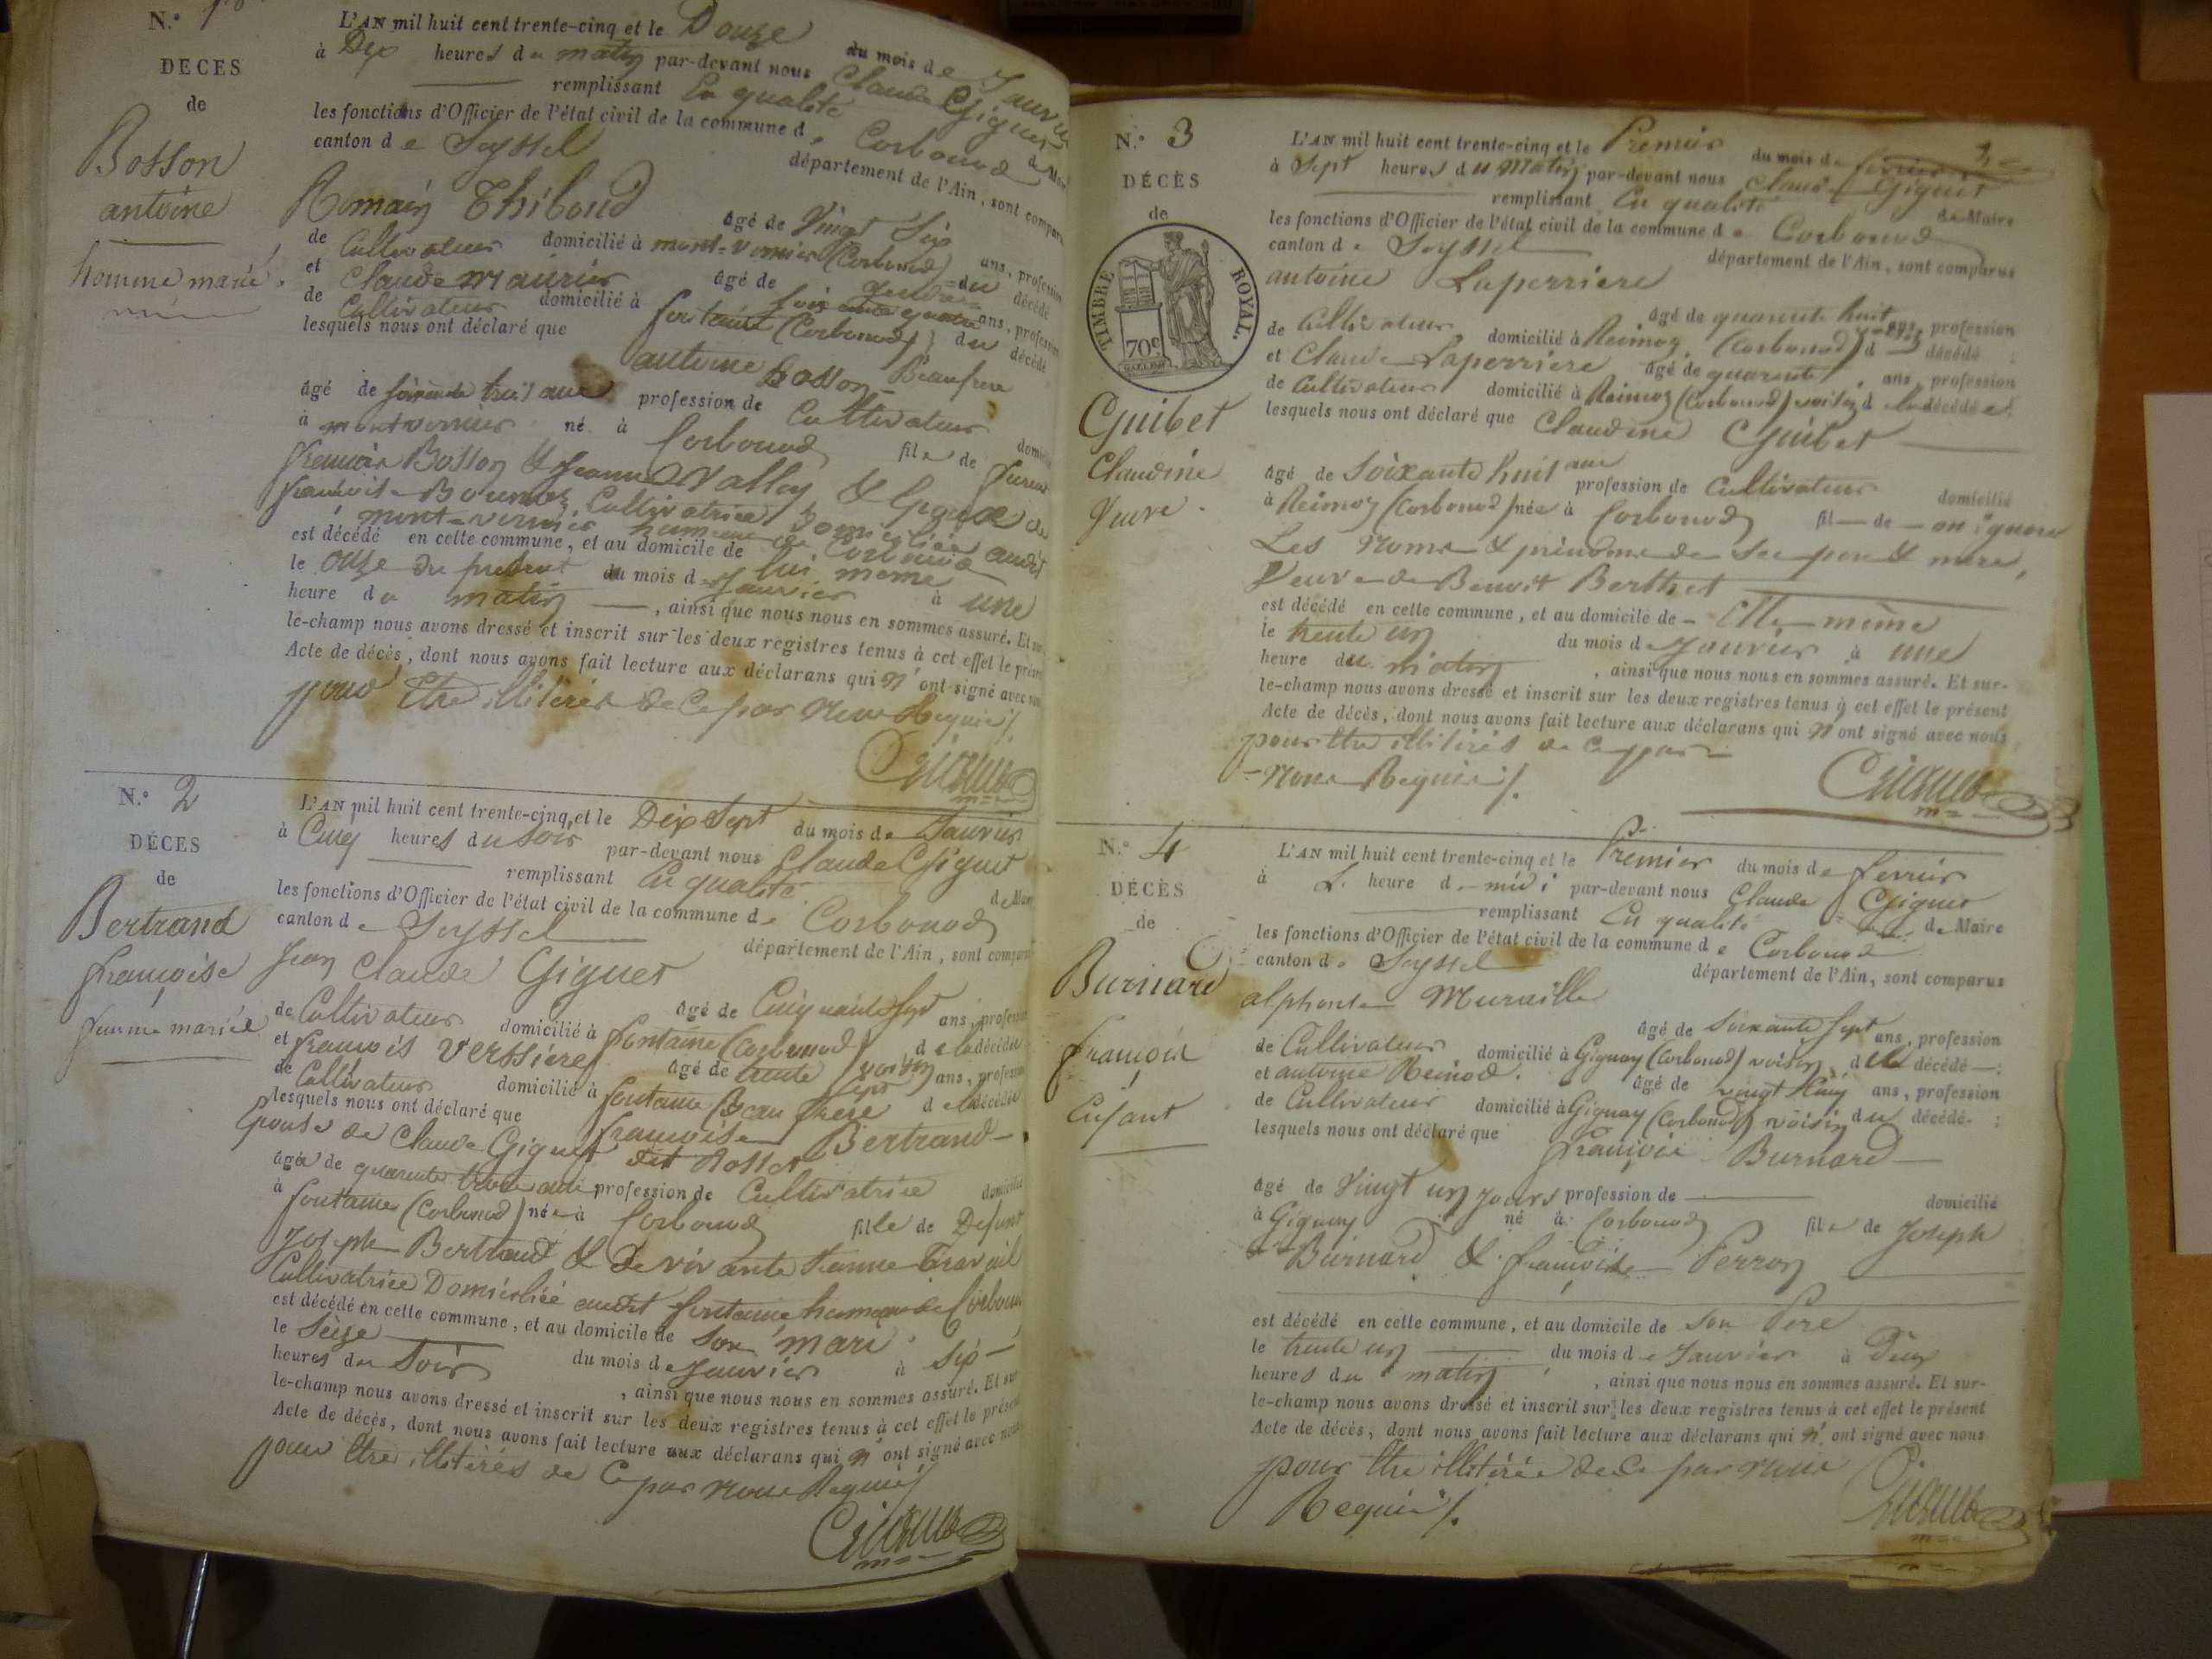 N.° 1er
DECES
de
Bosson
antoine
homme marié
L'AN mil huit cent trente-cinq et le Douze du mois de Janvier
à Dix heures du matin par-devant nous Claude Giguet
remplissant En qualité de Maire
les fonctions d'Officier de l'état civil de la commune de Corbonod
canton de Seyssel département de l'Ain, sont comparus
Romain Thiboud âgé de Vingt Six ans, profession
de Cultivateur domicilié à mont-vernier (Corbonod) du décédé
et Claude Maurier âgé de soixante quatre ans, profession
de Cultivateur domicilié à fontaine (Corbonod) du décédé
lesquels nous ont déclaré que antoine Bosson Beaufrere
âgé de soixante trois ans profession de Cultivateur domicilié
à mont vernier né à Corbonod fils de
françois Bosson & Jeanne Vallay & Epoux de
françoise Cultivatrice Domiciliée audit
mont-vernier hameau de Corbonod
est décédé en cette commune, et au domicile de lui même
le onze du présent du mois de Janvier à une
heure du matin, ainsi que nous nous en sommes assuré. Et sur-
le-champ nous avons dressé et inscrit sur les deux registres tenus à cet effet le présent
Acte de décès, dont nous avons fait lecture aux déclarans qui n'ont signé avec nous
pour Etre illitérés de Ce par nous Requis/.
Giguet
N.° 2
DÉCES
de
Bertrand
françoise
femme mariée
L'AN mil huit cent trente-cinq, et le Dix Sept du mois de Janvier
à Cinq heures du soir par-devant nous Claude Giguet
remplissant En qualité de Maire
les fonctions d'Officier de l'état civil de la commune de Corbonod
canton de Seyssel département de l'Ain, sont comparus
Jean Claude Giguet âgé de Cinquante Sept ans, profession
de Cultivateur domicilié à fontaine (Corbonod) voisin de la décédée
et françois Verssiere âgé de trente Sept ans, profession
de Cultivateur domicilié à fontaine Beau frere de la décédée
lesquels nous ont déclaré que françoise Bertrand
Epouse de Claude Giguet dit Rosset
âgée de quarante trois ans profession de Cultivatrice domicilié
à fontaine (Corbonod) née à Corbonod fille de Defunt
Joseph Bertrand & De vivante Jeanne
Cultivatrice Domiciliée audit fontaine hameau de Corbonod
est décédé en cette commune, et au domicile de Son mari
le Seize du mois de Janvier à Six
heures du Soir, ainsi que nous nous en sommes assuré. Et sur-
le-champ nous avons dressé et inscrit sur les deux registres tenus à cet effet le présent
Acte de décès, dont nous avons fait lecture aux déclarans qui n'ont signé avec nous
pour Etre illitérés de Ce par nous Requis/
Giguet
N.° 3
DÉCÈS
de
TIMBRE ROYAL.
70c
Guibet
Claudine
Veuve.
L'AN mil huit cent trente-cinq et le Premier du mois de fevrier
à Sept heures du Matin par-devant nous Claude Giguet
remplissant En qualité de Maire
les fonctions d'Officier de l'état civil de la commune de Corbonod
canton de Seyssel département de l'Ain, sont comparus
antoine Laperriere âgé de quarante huit ans, profession
de Cultivateur domicilié à Reimoz (Corbonod) d décédé;
et Claude Laperriere âgé de quarante ans, profession
de Cultivateur domicilié à Reimoz (Corbonod) voisin de la décédée;
lesquels nous ont déclaré que Claudine Guibet
âgé de Soixante huit ans profession de Cultivateur domicilié
à Reimoz (Corbonod) née à Corbonod fil de on ignore
Les Noms & prénoms de ses pere & mere,
Veuve de Benoit Berthet
est décédé en cette commune, et au domicile de Elle-même
le trente un du mois de Janvier à une
heure du matin, ainsi que nous nous en sommes assuré. Et sur-
le-champ nous avons dressé et inscrit sur les deux registres tenus à cet effet le présent
Acte de décès, dont nous avons fait lecture aux déclarans qui n'ont signé avec nous
pour Etre illitérés de Ce par
Nous Requis/.
Giguet
N.° 4
DÉCÈS
de
Burnard
françois
Enfant
L'AN mil huit cent trente-cinq et le Premier du mois de fevrier
à L. heure de midi par-devant nous Claude Giguet
remplissant En qualité de Maire
les fonctions d'Officier de l'état civil de la commune de Corbonod
canton de Seyssel département de l'Ain, sont comparus
alphonse Muraille âgé de Soixante Sept ans, profession
de Cultivateur domicilié à Gignay (Corbonod) voisin du décédé;
et antoine Reinod. âgé de vingt Cinq ans, profession
de Cultivateur domicilié à Gignay (Corbonod) voisin du décédé;
lesquels nous ont déclaré que françois Burnard
âgé de Vingt un jours profession de domicilié
à Gignay né à Corbonod fils de Joseph
Burnard & françoise Perron
est décédé en cette commune, et au domicile de Son Pere
le trente un du mois de Janvier à Deux
heures du matin, ainsi que nous nous en sommes assuré. Et sur-
le-champ nous avons dressé et inscrit sur les deux registres tenus à cet effet le présent
Acte de décès, dont nous avons fait lecture aux déclarans qui n'ont signé avec nous
pour Etre illitérés de Ce par nous
Requis/.
Giguet